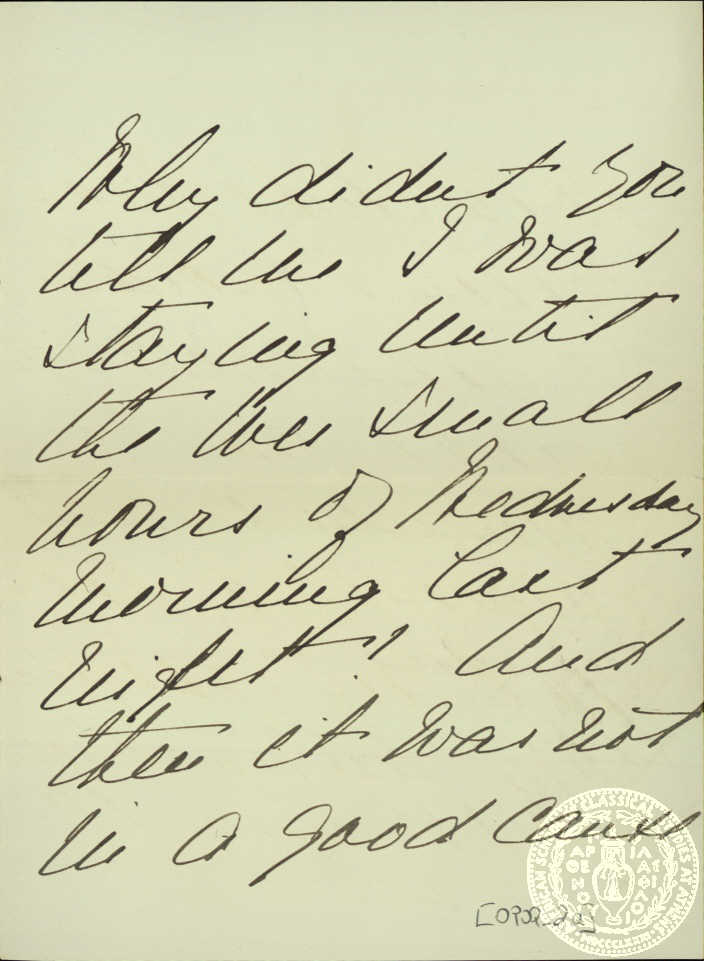 Why didnt you
tell me I was
staying until
the wee small
hours of Wednesday
morning last
night! And
then it was not
in a good cause
[OPO2_2a]